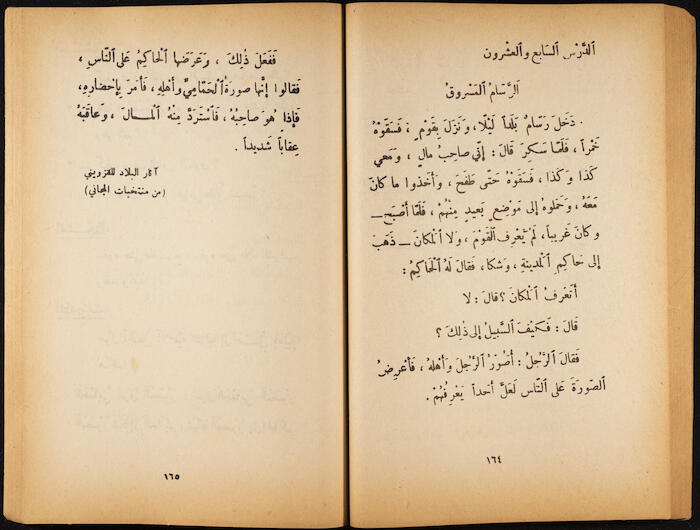 الدَّرْس السَابع والْعشْرون
الرَّسّامُ الْمَسْروقُ
دَخَلَ رَسّامٌ بَلَداً لَيْلًا ، وَنَزَلَ بِقَوْمٍ ، فَسَقَوْهُ
خَمْراً ، فَلَمّا سَكِرَ قالَ : إنّي صاحِبُ مالٍ ، وَمَعي
كَذا وَكَذا ، فَسَقَوْهُ حَتّى طَفَحَ ، وَأَخَذوا ما كانَ
مَعَهُ ، وَحَمَلوهُ إلى مَوْضِعٍ بَعيدٍ مِنْهُمْ ، فَلَمّا أَصْبَحَ –
وَكانَ غَريباً، لَمْ يَعْرِفِ الْقَوْمَ ، وَلا الْمَكانَ – ذَهَبَ
إلى حاكِمِ الْمَدينَةِ ، وَشَكا ، فَقالَ لَهُ الْحاكِمُ :
أَتَعْرِفُ الْمَكانَ ؟ قالَ : لا
قالَ : فَكَيْفَ السَّبيلُ إلى ذلِكَ ؟
فَقالَ الرَّجُلُ : أُصَوِّرُ الرَّجُلَ وَأَهْلَهُ ، فَأَعْرِضُ
الصّورَةَ عَلى النّاسِ لَعَلَّ أَحَداً يَعْرِفُهُمْ .
١٦٤
فَفَعَلَ ذٰلِكَ ، وَعَرَضَها الْحاكِمُ عَلى النّاسِ ،
فَقالوا إنَّها صورَةُ الْحَمّامِيِّ وَأَهْلِهِ ، فَأَمَرَ بِإحْضارِهِ،
فَإِذا هُوَ صاحِبُهُ ، فَاسْتَرَدَّ مِنْهُ الْمـالَ ، وَعاقَبَهُ
عِقاباً شَديداً .
آثار البلاد للقزويني
(من منتخبات المجاني)
١٦٥